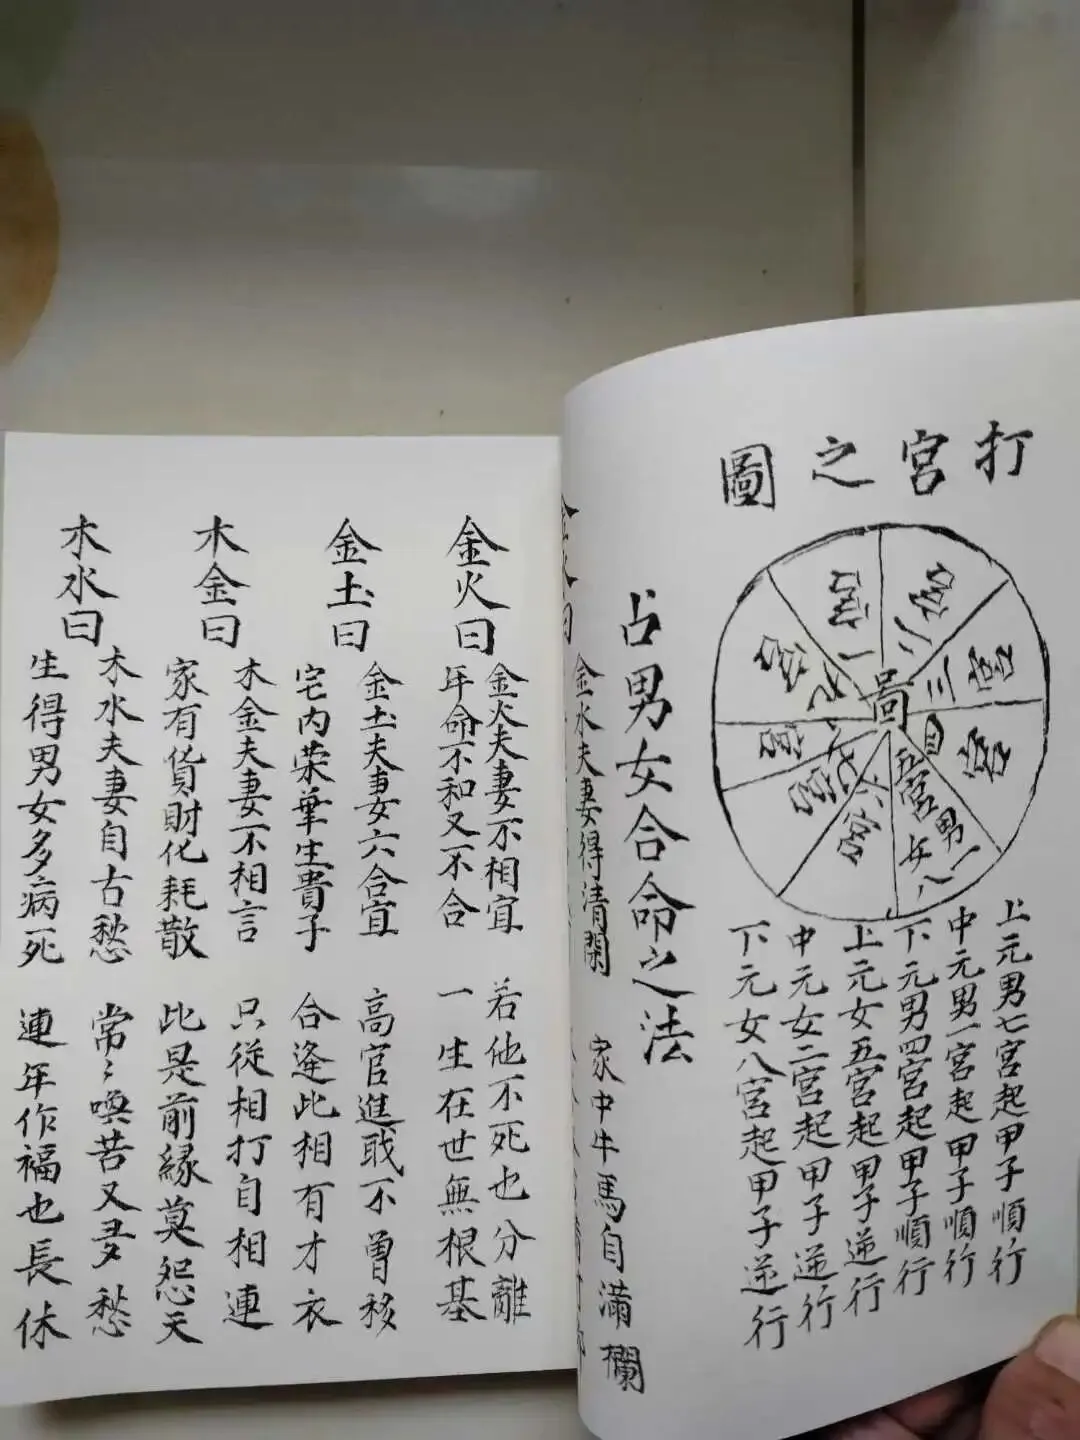 打宮之圖
一宮
二宮
三宮
宮
五宮 男一 女八
六宮
七宮
宮
九宮
圖
上元男七宮起甲子順行
中元男一宮起甲子順行
下元男四宮起甲子順行
上元女五宮起甲子逆行
中元女二宮起甲子逆行
下元女八宮起甲子逆行
占男女合命之法
金水夫妻得清閑 家中牛馬自滿欄
金火曰
金火夫妻不相宜 若他不死也分離
年命不和又不合 一生在世無根基
金土曰
金土夫妻六合宜 高官進戝不曾移
宅内荣華生貴子 合逢此相有才衣
木金曰
木金夫妻不相言 只從相打自相連
家有貨財化耗散 此是前緣莫怨天
木水曰
木水夫妻自古愁 常々喚苦又多愁
生得男女多病死 連年作福也長休